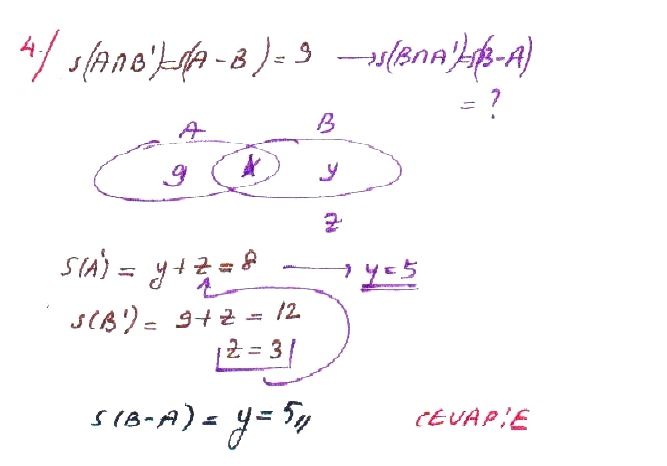 4./ s(A∩B')=s(A-B)=9 → s(B∩A')=s(B-A)
= ?
A B
9 x y
z
s(A') = y+z = 8 → y=5
s(B') = 9+z = 12
z = 3
s(B-A) = y = 5,,
CEVAP:E